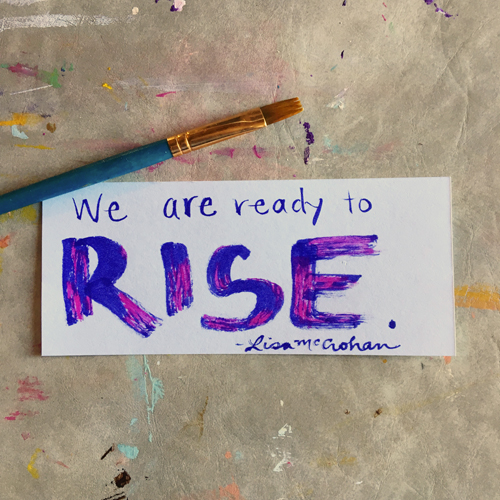 We are ready to
RISE.
-Lisa McCrohan